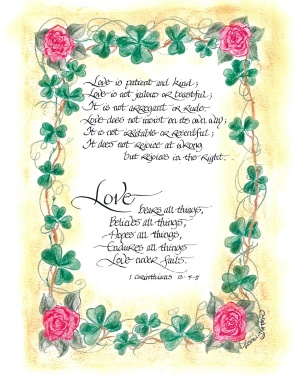 Love is patient and kind;
Love is not jealous or boastful;
It is not arrogant or rude.
Love does not insist on its own way;
It is not irritable or resentful;
It does not rejoice at wrong,
but rejoices in the right.
Love
bears all things,
Believes all things,
Hopes all things,
Endures all things
Love never fails.
1 Corinthians 13 • 4-8